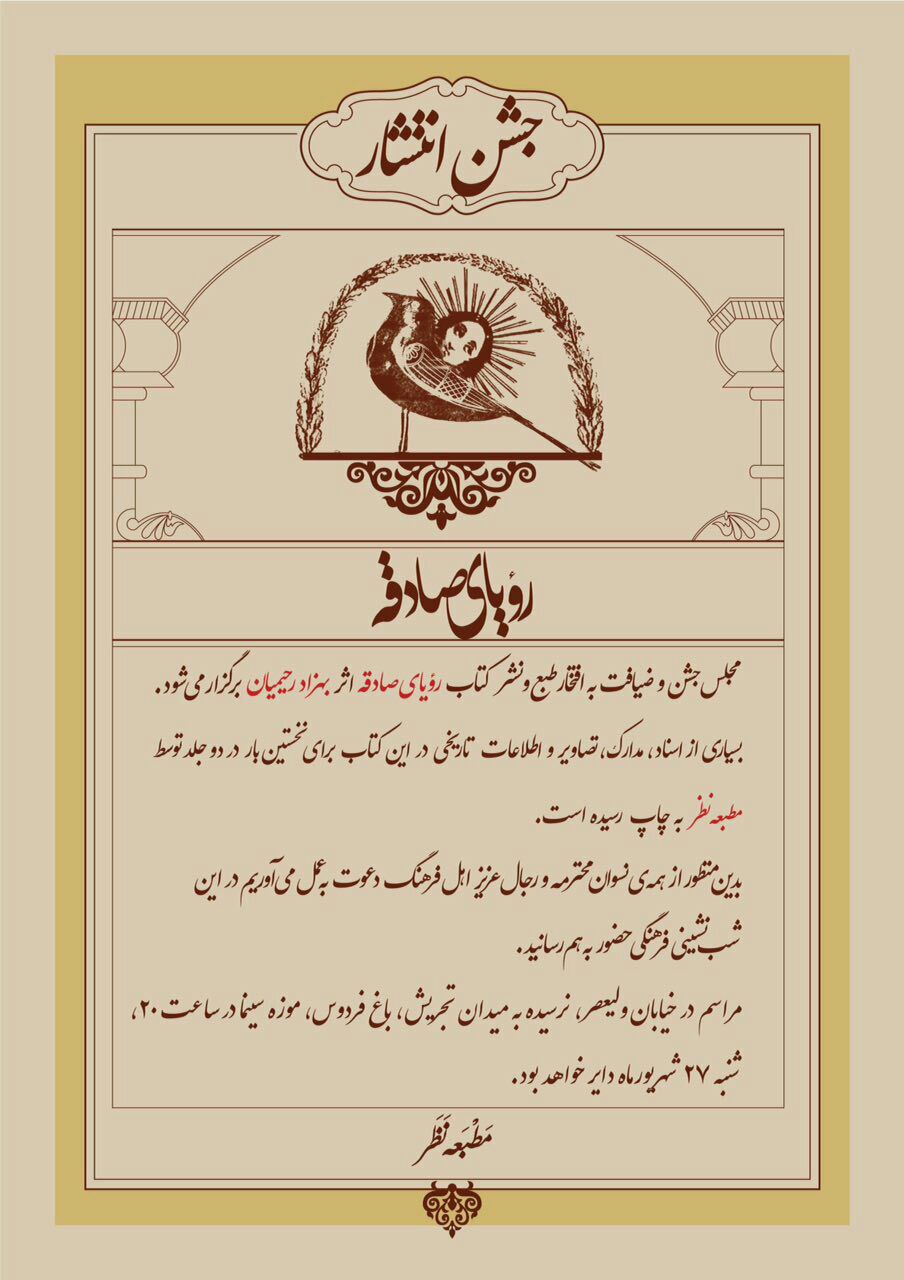 جشن انتشار
رؤیای صادقه
مجلس جشن و ضیافت به افتخار طبع و نشر کتاب رؤیای صادقه اثر بهزاد رحیمیان برگزار می‌شود.
بسیاری از اسناد، مدارک، تصاویر و اطلاعات تاریخی در این کتاب برای نخستین بار در دو جلد توسط
مطبعه نظر به چاپ رسیده است.
بدین منظور از همه‌ی نسوان محترمه و رجال عزیز اهل فرهنگ دعوت به عمل می‌آوریم در این
شب نشینی فرهنگی حضور به هم رسانید.
مراسم در خیابان ولیعصر، نرسیده به میدان تجریش، باغ فردوس، موزه سینما در ساعت ۲۰،
شنبه ۲۷ شهریور ماه دایر خواهد بود.
مَطْبَعه نَظَر